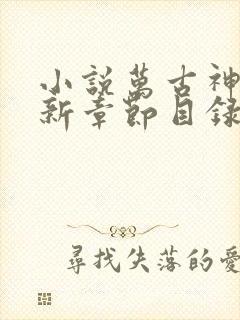 小說萬古神
新章節目錄
尋找失落的愛